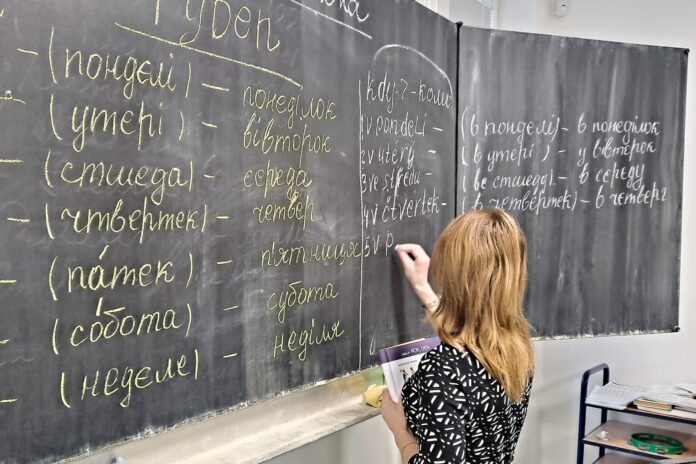 тубеп
(понделі) – понеділок
(утері) – вівторок
(стшеда) – середа
– (чтвертек) – четвер
(па́тек) – п'ятниця
(со́бота) – субота
(неделе) – неділя
kdy-?-коли
1 v pondělí –
2 v úterý –
3 ve středu –
4 v čtvertek –
5 v p
(в понделі) – в понеділок
(в утері) – у вівторок
(ве стшеду) – в середу
(в чтвертек) – в четвер